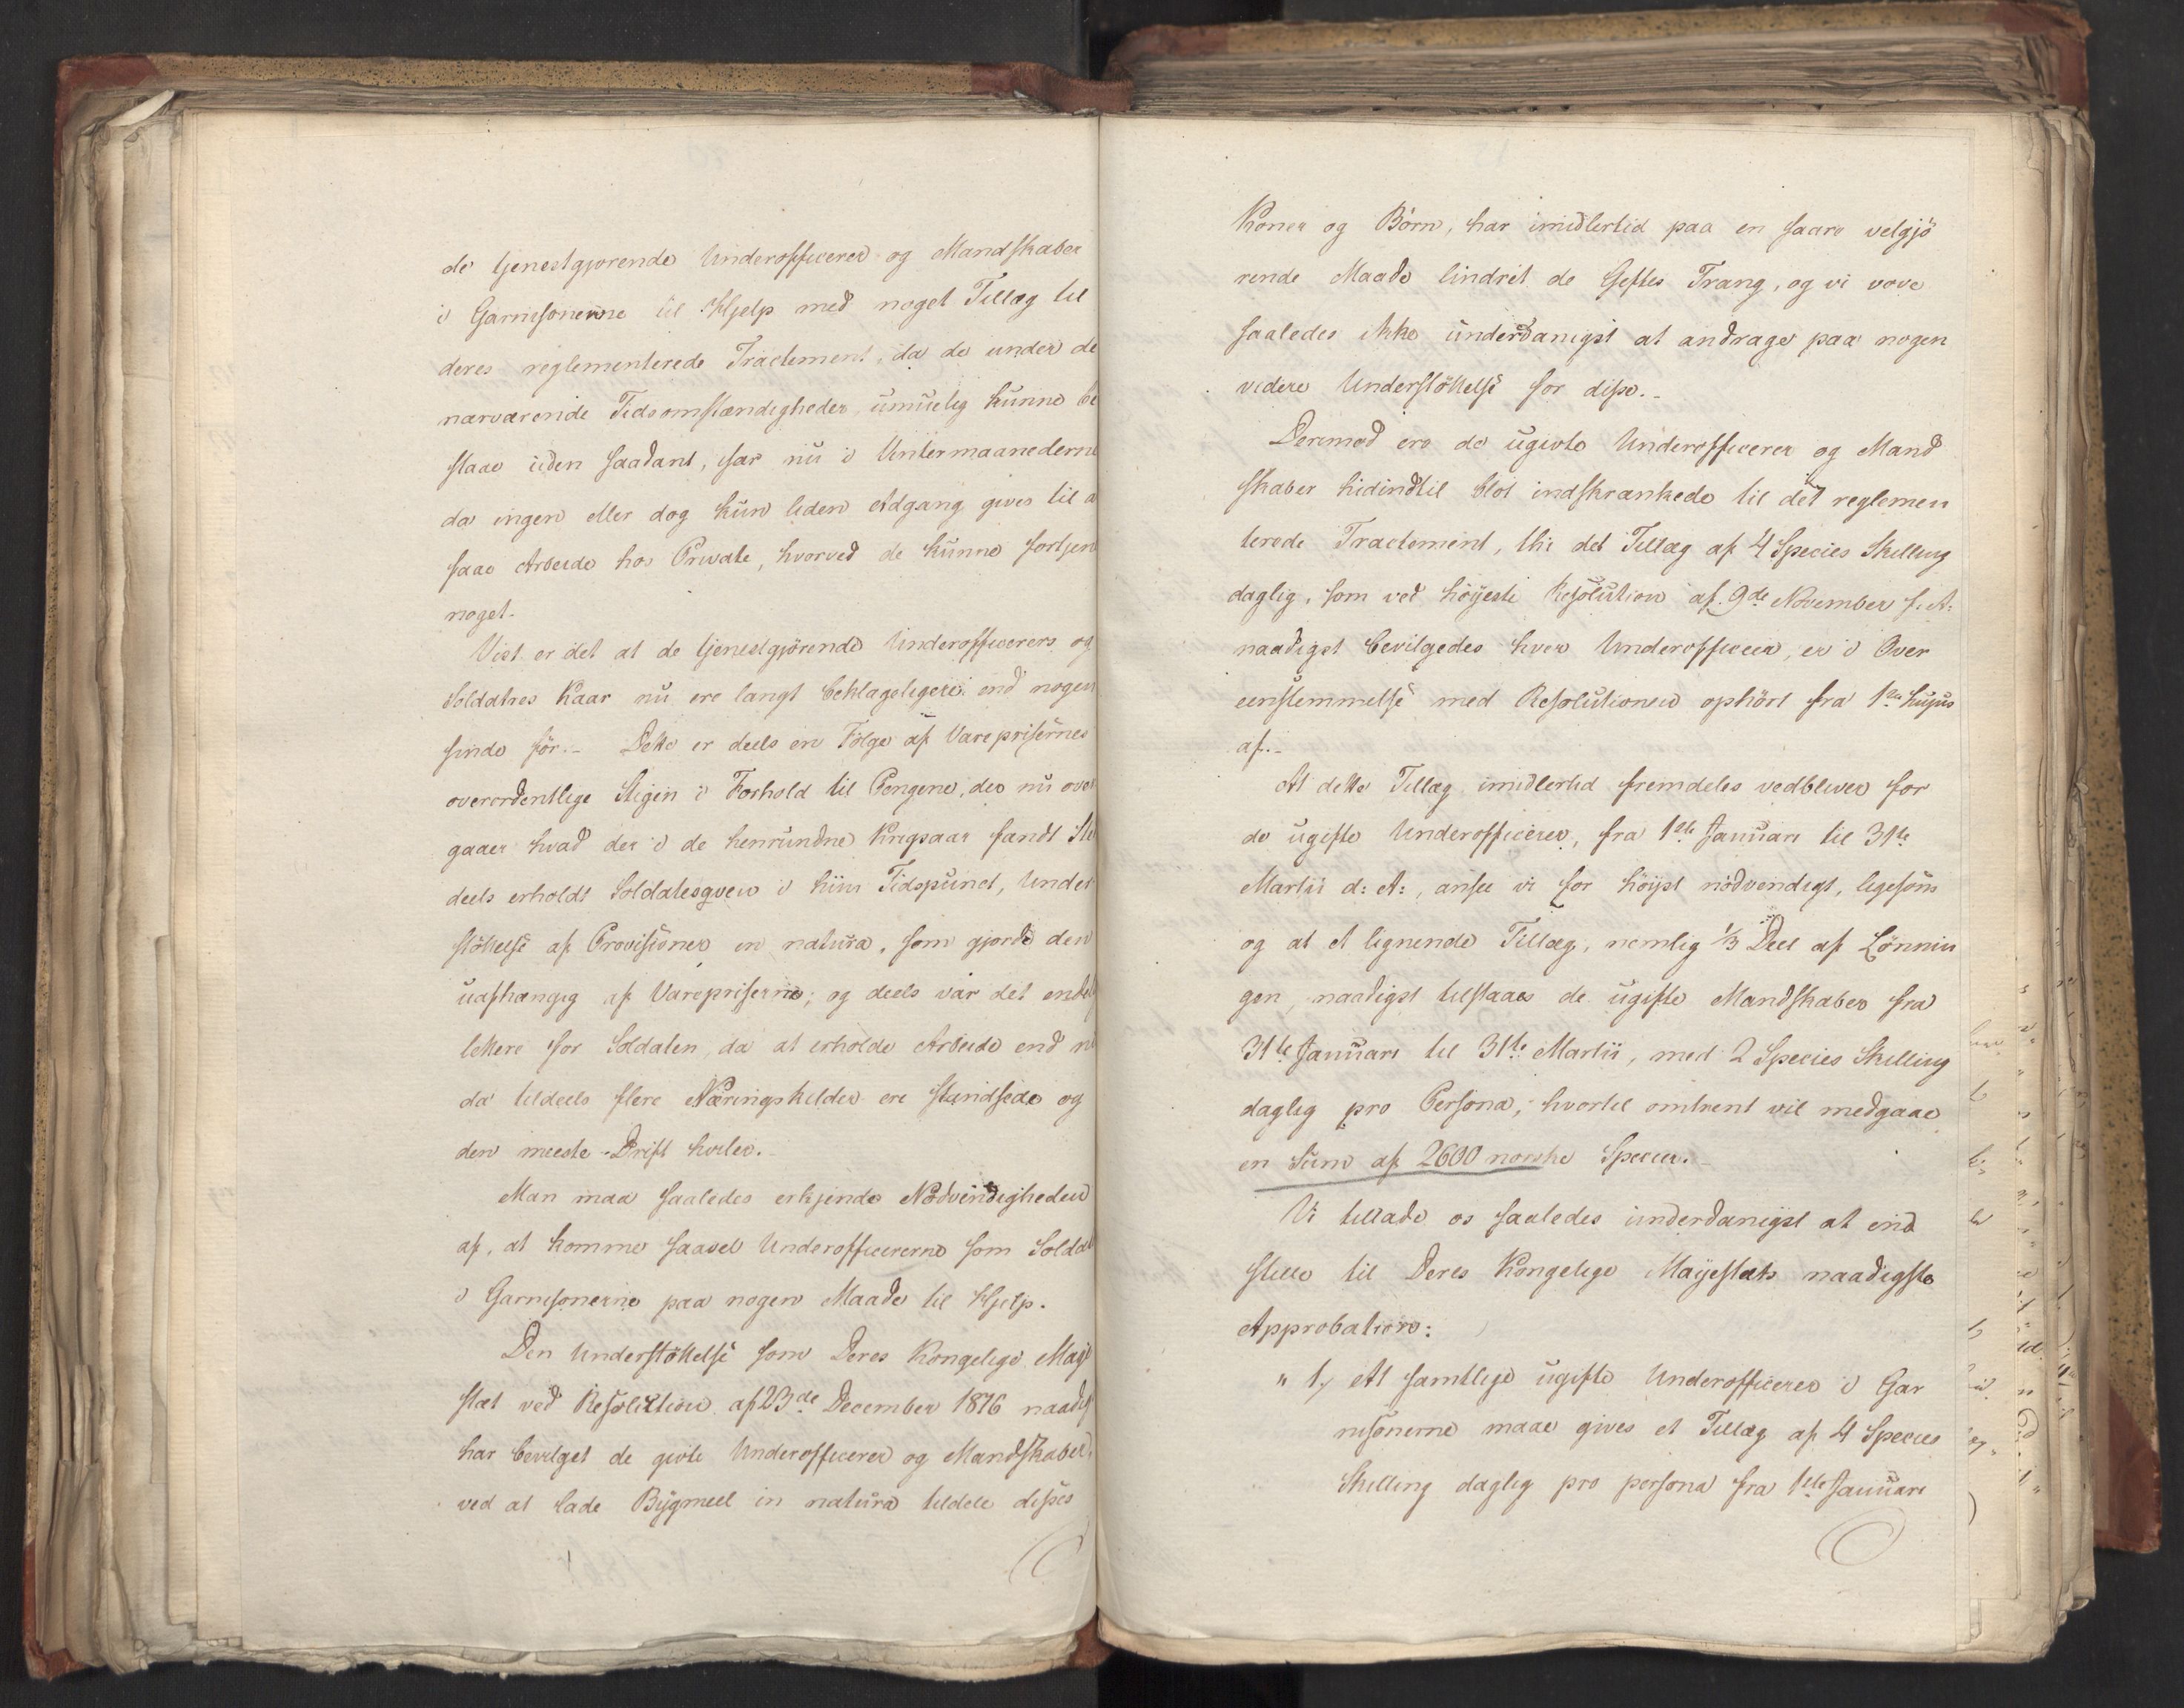 de tjenestgjørende Underofficerer og Mandskaber
i Garnisonerne til Hjelp med noget Tillæg til
deres reglementerede Tractement, da de under de
nærværende Tidsomstændigheder umuelig kunne be
staae uden saadant, især nu i Vintermaanederne
da ingen eller dog kun liden Adgang gives til a
faae Arbeide hos Private, hvorved de kunne fortjen
noget.
Vist er det at de tjenestgjørende Underofficerers og
Soldatres Kaar nu ere langt beklageligere end nogen
sinde før. - Dette er deels en Følge af Varepriserne
overordentlige Stigen i Forhold til Pengene, der nu over
gaaer hvad der i de henrundne Krigsaar fandt Ste
deels erholdt Soldatesquen i hiin Tidspunct, Under
støttelse af Provisioner in natura, som gjorde den
uafhængig af Varepriserne; og deels var det endel
lettere for Soldaten, da at erholde Arbeide end n
da tildeels flere Næringskilder ere standsede og
den meeste Drift hviler.
Man maa saaledes erkjende Nødvendigheden
af, at komme saavel Underofficererne som Soldat
i Garnisonerne paa nogen Maade til Hjelp.
Den Understøttelse som Deres Kongelige Maje
stæt ved Resolution af 23de December 1816 naadig
har bevilget de givte Underofficerer og Mandskaber,
ved at lade Bygmeel in natura tildele disses
Koner og Børn, har imidlertid paa en saare velgjö
rende Maade lindret de Giftes Trang, og vi vove
saaledes ikke underdanigst at andrage paa nogen
videre Understöttelse for disse. -
Derimod ere de ugivte Underofficerer og Mand
skaber hidindtil blot indskrænkede til det reglemen
terede Tractement, thi det Tillæg af 4 Species Skilling
daglig, som ved höyeste Resolution af 9de November f. A:
naadigst bevilgedes hver Underofficeer, er i Over
eenstemmelse med Resolutionen ophört fra 1ste hujus
af. -
At dette Tillæg imidlertid fremdeles vedbliver for
de ugifte Underofficerer, fra 1ste Januari til 31te
Martii d: A:, ansee vi for höist nödvendigt, ligesom
og at et lignende Tillæg, nemlig 1/3 Deel af Lönnin
gen, naadigst tilstaaes de ugifte Mandskaber fra
31te Januari til 31te Martii, med 2 Species Skilling
daglig pro Persona, hvortil omtrent vil medgaae
en Sum af 2600 norske Species. -
Vi tillade os saaledes underdanigst at ind
stille til Deres Kongelige Majestæts naadigste
Approbation:
" 1, At samtlige ugifte Underofficerer i Gar
nisonerne maae gives et Tillæg af 4 Species
Skilling daglig pro persona fra 1ste Januari